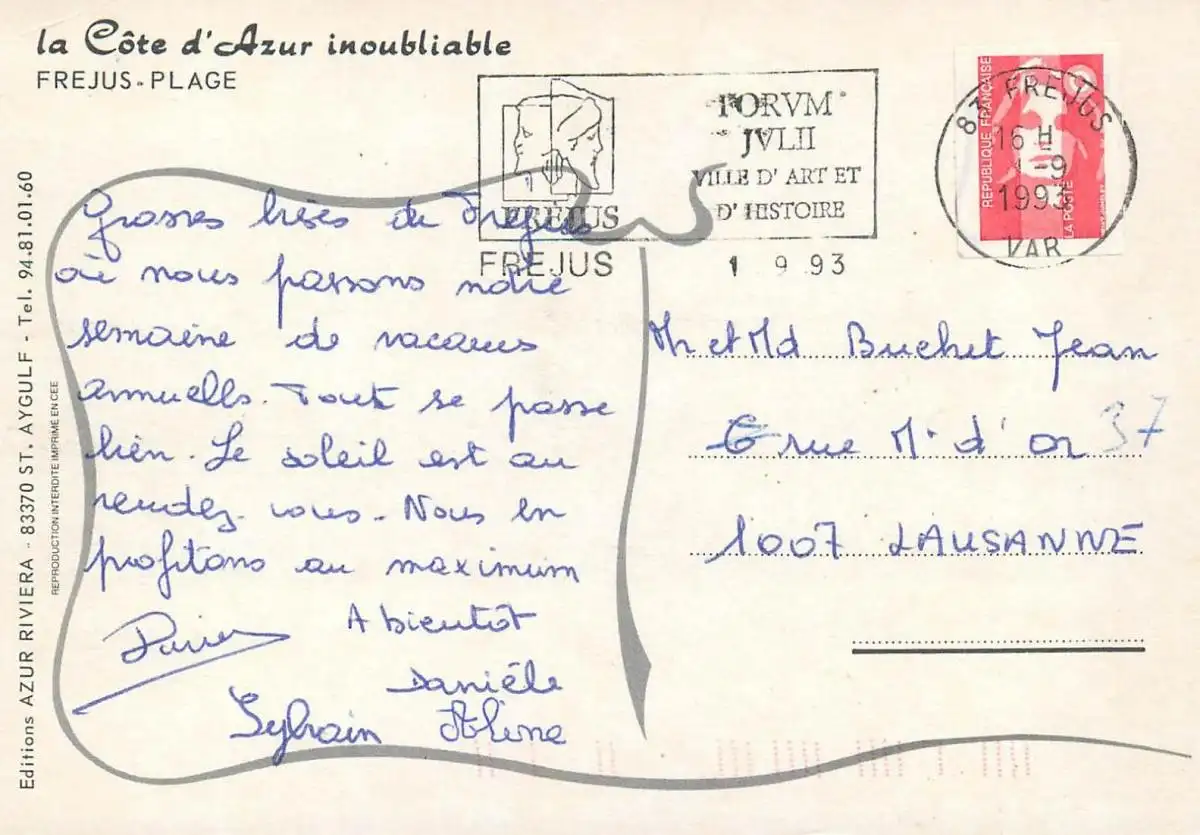 la Côte d'Azur inoubliable
FREJUS-PLAGE
FORVM
JVLII
VILLE D'ART ET
D'HISTOIRE
FRÉJUS
FREJUS
1 9.93
83 FREJUS
16 H
1-9
1993
VAR
REPUBLIQUE FRANÇAISE
LA POSTE
Grosses bises de Fréjus
où nous passons notre
semaine de vacances
annuelle. Tout se passe
bien. Le soleil est au
rendez-vous. Nous en
profitons au maximum
A bientôt
Danièle
Sylvain
Mr et Md Buchet Jean
6 rue M. d'or 37
1007 LAUSANNE
Editions AZUR RIVIERA - 83370 ST. AYGULF - Tel. 94.81.01.60
REPRODUCTION INTERDITE IMPRIME EN CEE